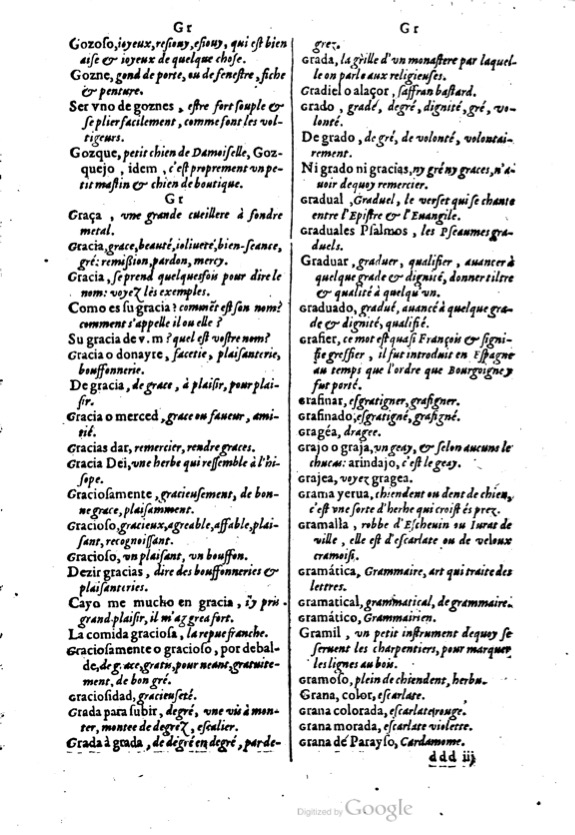 Gr
Gozoso, ioyeux, resiouy, esiouy, qui est bien
aise & ioyeux de quelque chose.
Gozne, gond de porte, ou de fenestre, fiche
& penture.
Ser vno de goznes, estre fort souple &
se plier facilement, comme font les vol-
tigeurs.
Gozque, petit chien de Damoiselle, Goz-
quejo, idem, c'est proprement vn pe-
tit mastin & chien de boutique.
Gr
Graça, vne grande cueillere à fondre
metal.
Gracia, grace, beauté, ioliueté, bien-seance,
gré: remission, pardon, mercy.
Gracia, se prend quelquesfois pour dire le
nom: voyez les exemples.
Como es su gracia? commēt est son nom?
comment s'appelle il ou elle?
Su gracia de v. m? quel est vostre nom?
Gracia o donayte, facetie, plaisanterie,
bouffonnerie.
De gracia, de grace, à plaisir, pour plai-
sir.
Gracia o merced, grace ou faueur, ami-
tié.
Gracias dar, remercier, rendre graces.
Gracia Dei, vne herbe qui ressemble à l'hi-
sope.
Graciosamente, gracieusement, de bon-
ne grace, plaisamment.
Gracioso, gracieux, agreable, affable, plai-
sant, recognoissant.
Gracioso, vn plaisant, vn bouffon.
Dezir gracias, dire des bouffonneries &
plaisanteries.
Cayo me mucho en gracia, i'y pris
grand plaisir, il m'ag grea fort.
La comida graciosa, la repue franche.
Graciosamente o gracioso, por debal-
de, de grace, gratis, pour neant, gratuite-
ment, de bon gré.
graciosidad, gracieuseté.
Grada para subir, degré, vne vis à mon-
ter, montee de degrez, escalier.
Grada à grada, de degré en degré, par de-
Gr
grez.
Grada, la grille d'vn monastere par laquel-
le on parle aux religieuses.
Gradiel o alaçor, saffran bastard.
Grado, gradé, degré, dignité, gré, vo-
lonté.
De grado, de gré, de volonté, volontai-
rement.
Ni grado ni gracias, ny gré ny graces, n'a-
uoir dequoy remercier.
Gradual, Graduel, le verset qui se chante
entre l'Epistre & l'Euangile.
Graduales Psalmos, les Pseaumes gra-
duels.
Graduar, graduer, qualifier, auancer à
quelque grade & dignité, donner tiltre
& qualité à quelqu'vn.
Graduado, gradué, auancé à quelque gra-
de & dignité, qualifié.
Grafier, ce mot est quasi François & signi-
fie greffier, il fut introduit en Espagne
au temps que l'ordre que Bourgoigne y
fut porté.
Grafinar, esgratigner, grafigner.
Grafinado, esgratigné, grafigné.
gragéa, dragee.
Grajo o graja, vn geay, & selon aucuns le
chucas: arindajo, c'est le geay.
Grajea, voyez gragea.
Grama yerua, chiendent ou dent de chien,
c'est vne sorte d'herbe qui croist és prez.
Gramalla, robbe d'Escheuin ou Iurat de
ville, elle est d'escarlate ou de veloux
cramoisi.
gramática, Grammaire, art qui traite des
lettres.
gramatical, grammatical, de grammaire.
gramático, Grammairien.
Gramil, vn petit instrument dequoy se
seruent les charpentiers, pour marquer
les lignes au bois.
gramoso, plein de chiendent, herbu.
Grana, color, escarlate.
grana colorada, escarlate rouge.
grana morada, escarlate violette.
grana de Parayso, Cardamome.
ddd iij
Digitized by Google